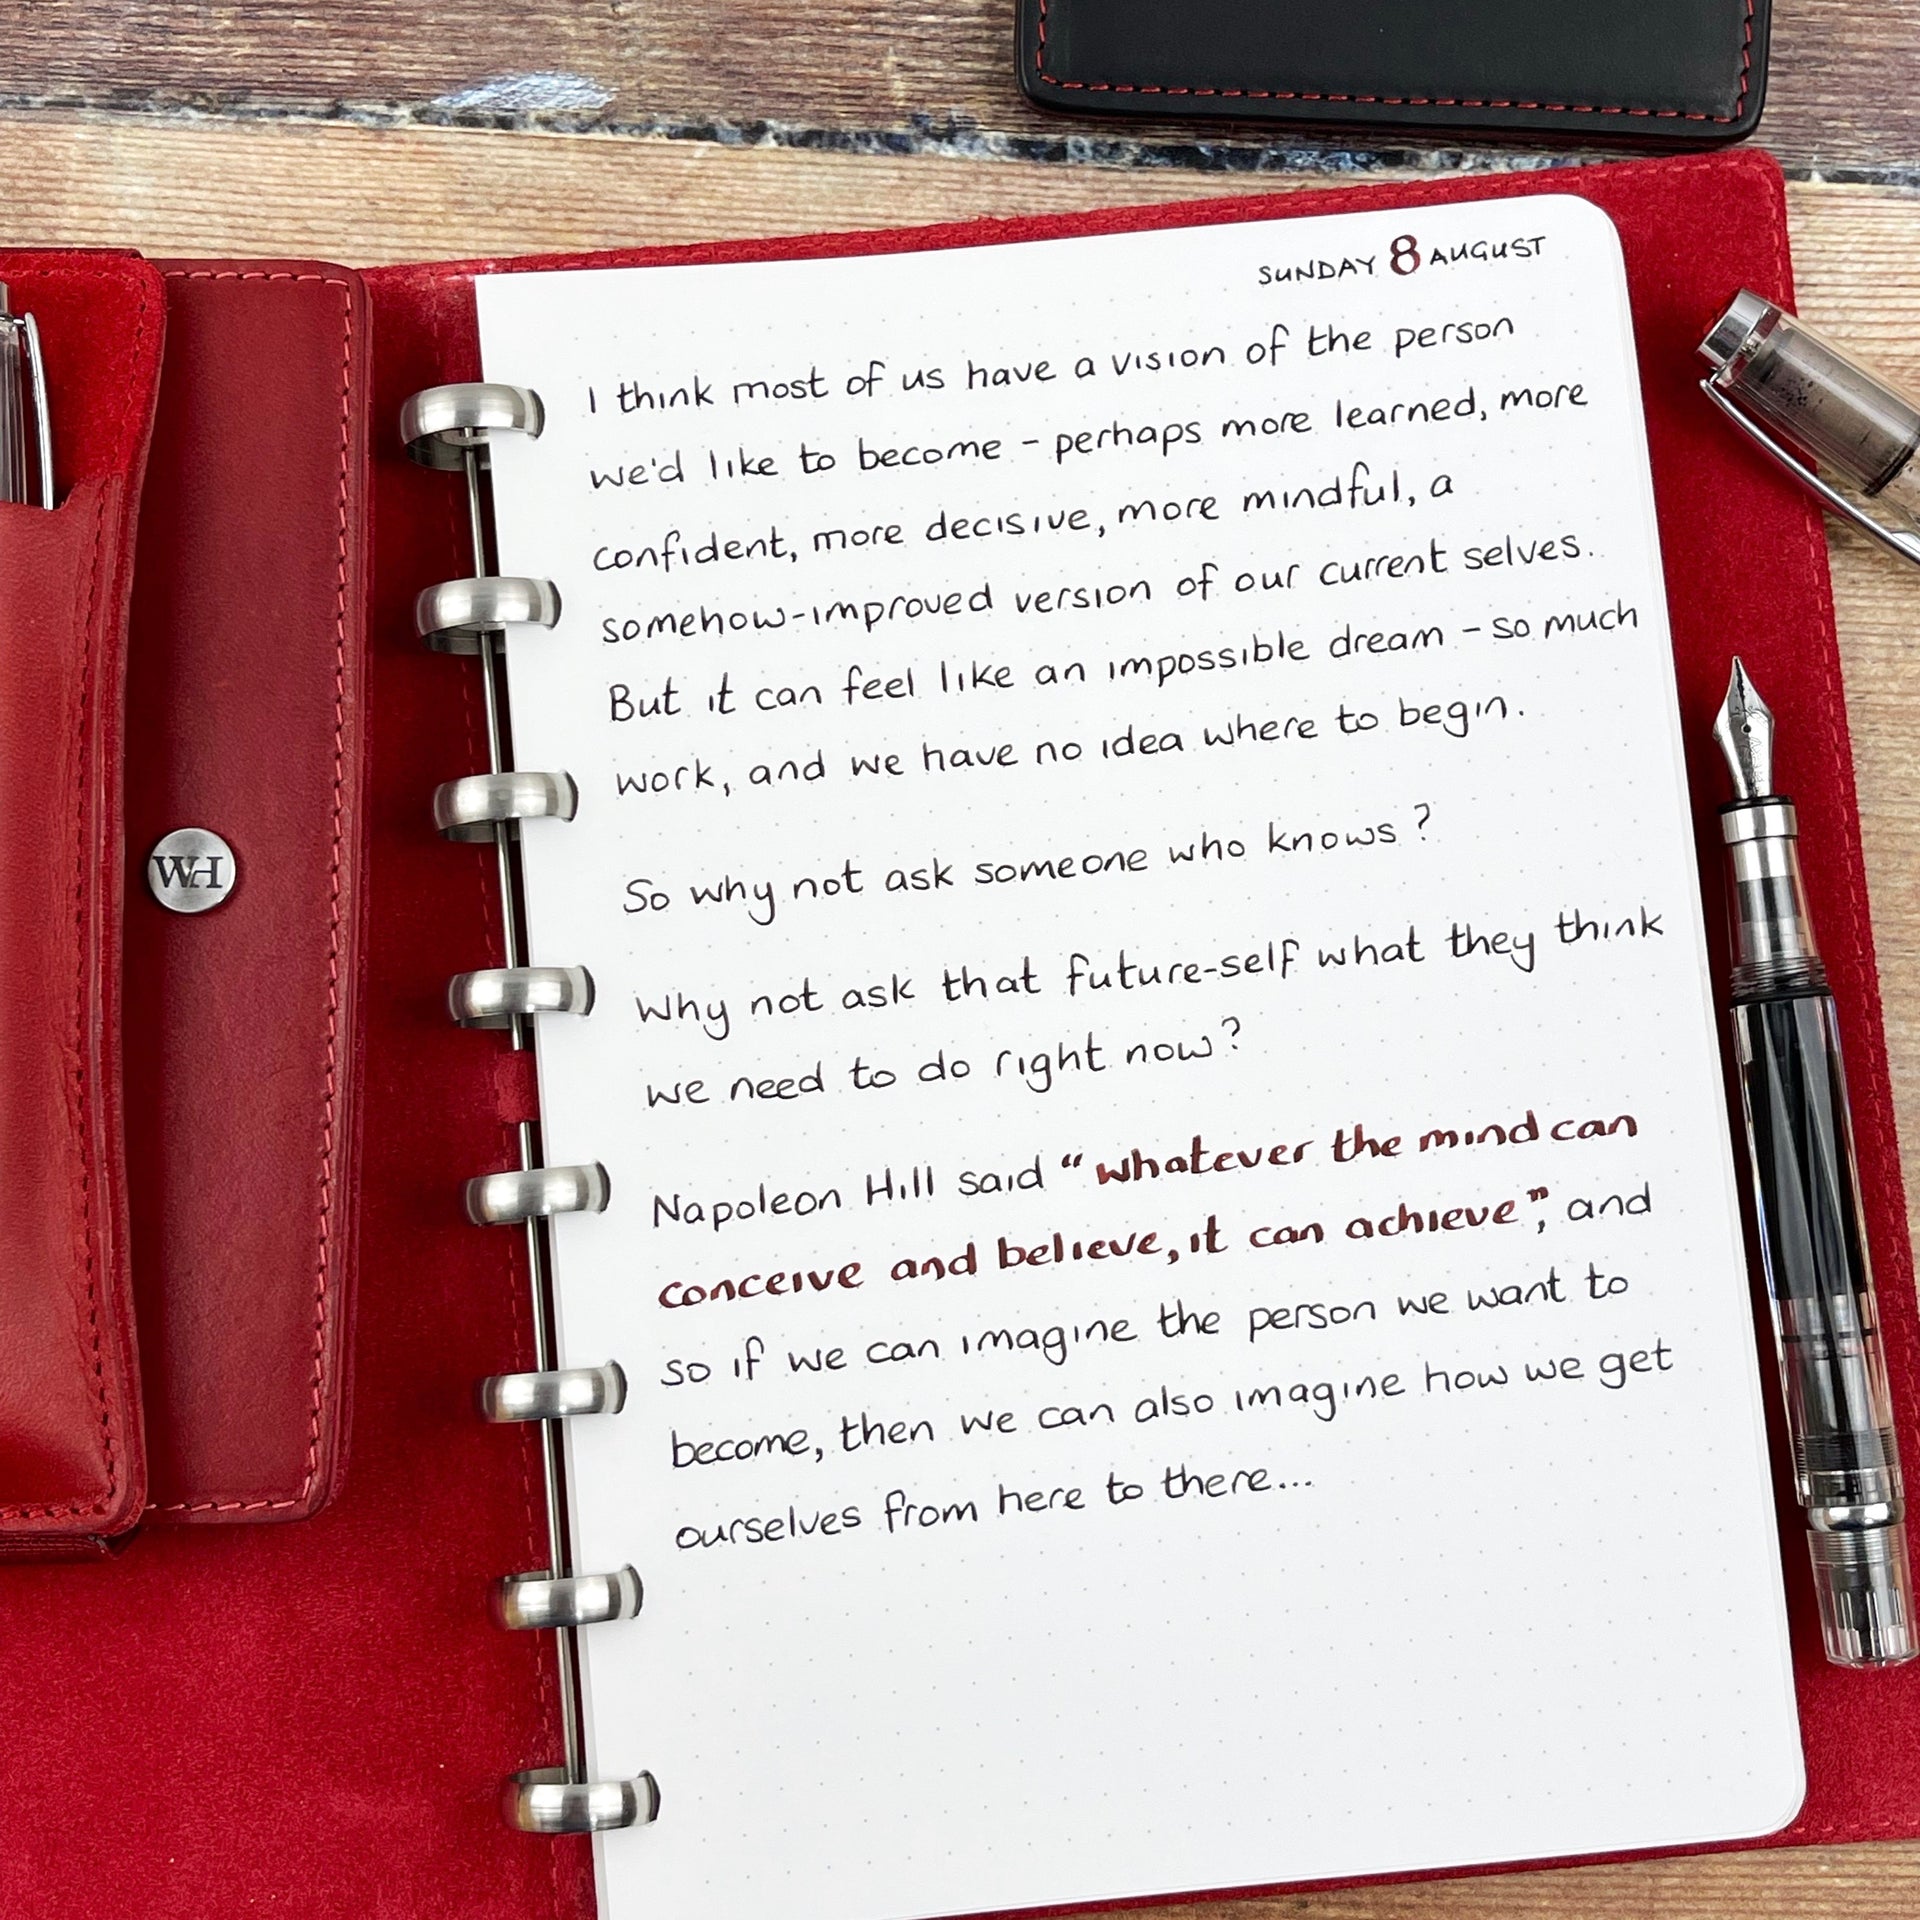 SUNDAY 8 AUGUST
I think most of us have a vision of the person
we'd like to become - perhaps more learned, more
confident, more decisive, more mindful, a
somehow-improved version of our current selves.
But it can feel like an impossible dream - so much
work, and we have no idea where to begin.
So why not ask someone who knows?
Why not ask that future-self what they think
we need to do right now?
Napoleon Hill said "whatever the mind can
conceive and believe, it can achieve", and
so if we can imagine the person we want to
become, then we can also imagine how we get
ourselves from here to there...
WH